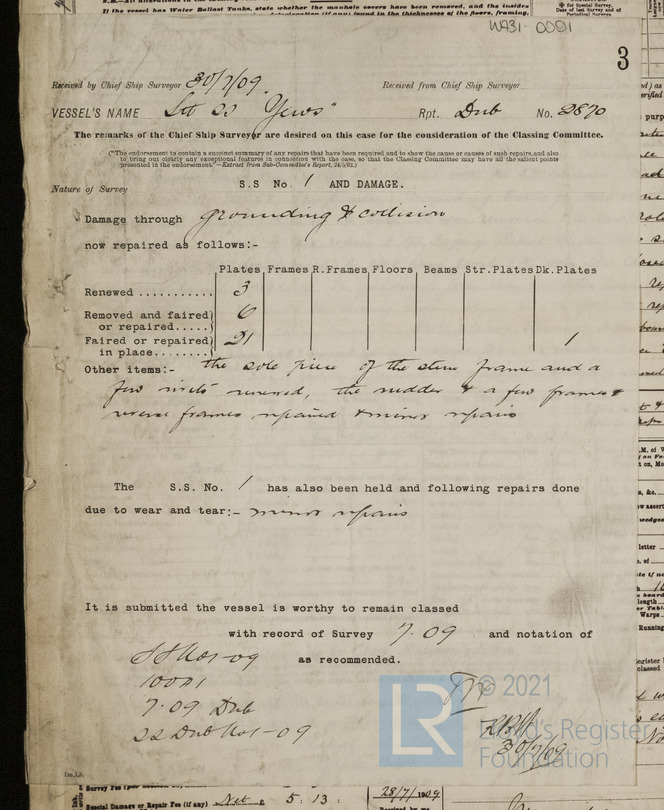 If the vessel has Water Ballast Tanks, state whether the manhole covers have been removed, and the insides
for Special Survey,
Date of last Survey and of
Periodical Surveys.
WA31-0001
3
Received by Chief Ship Surveyor 30/7/09 Received from Chief Ship Surveyor
VESSEL'S NAME "Yews" Rpt. Dub No. 2870
The remarks of the Chief Ship Surveyor are desired on this case for the consideration of the Classing Committee.
("The endorsement to contain a succinct summary of any repairs that have been required and to show the cause or causes of such repairs, and also
to bring out clearly any exceptional features in connection with the case, so that the Classing Committee may have all the salient points
presented in the endorsement."—Extract from Sub-Committee's Report, 24/3/92.)
Nature of Survey S.S No. 1 AND DAMAGE.
Damage through grounding & collision
now repaired as follows:-
Plates Frames R.Frames Floors Beams Str.Plates Dk.Plates
Renewed ........... 3
Removed and faired 6
or repaired.....
Faired or repaired 21 1
in place........
Other items:- the sole piece of the stern frame and a
few rivets renewed, the rudder & a few frames &
reverse frames repaired & minor repairs
The S.S. No. 1 has also been held and following repairs done
due to wear and tear:- minor repairs
It is submitted the vessel is worthy to remain classed
with record of Survey 7.09 and notation of
SS No1-09 as recommended.
100A1
7.09 Dub
SS Dub No1-09
© 2021
LR
Lloyd's Register
Foundation
30/7/09
Survey Fee
Special Damage or Repair Fee (if any) 5 : 13 :
28/7/1909
Received by me